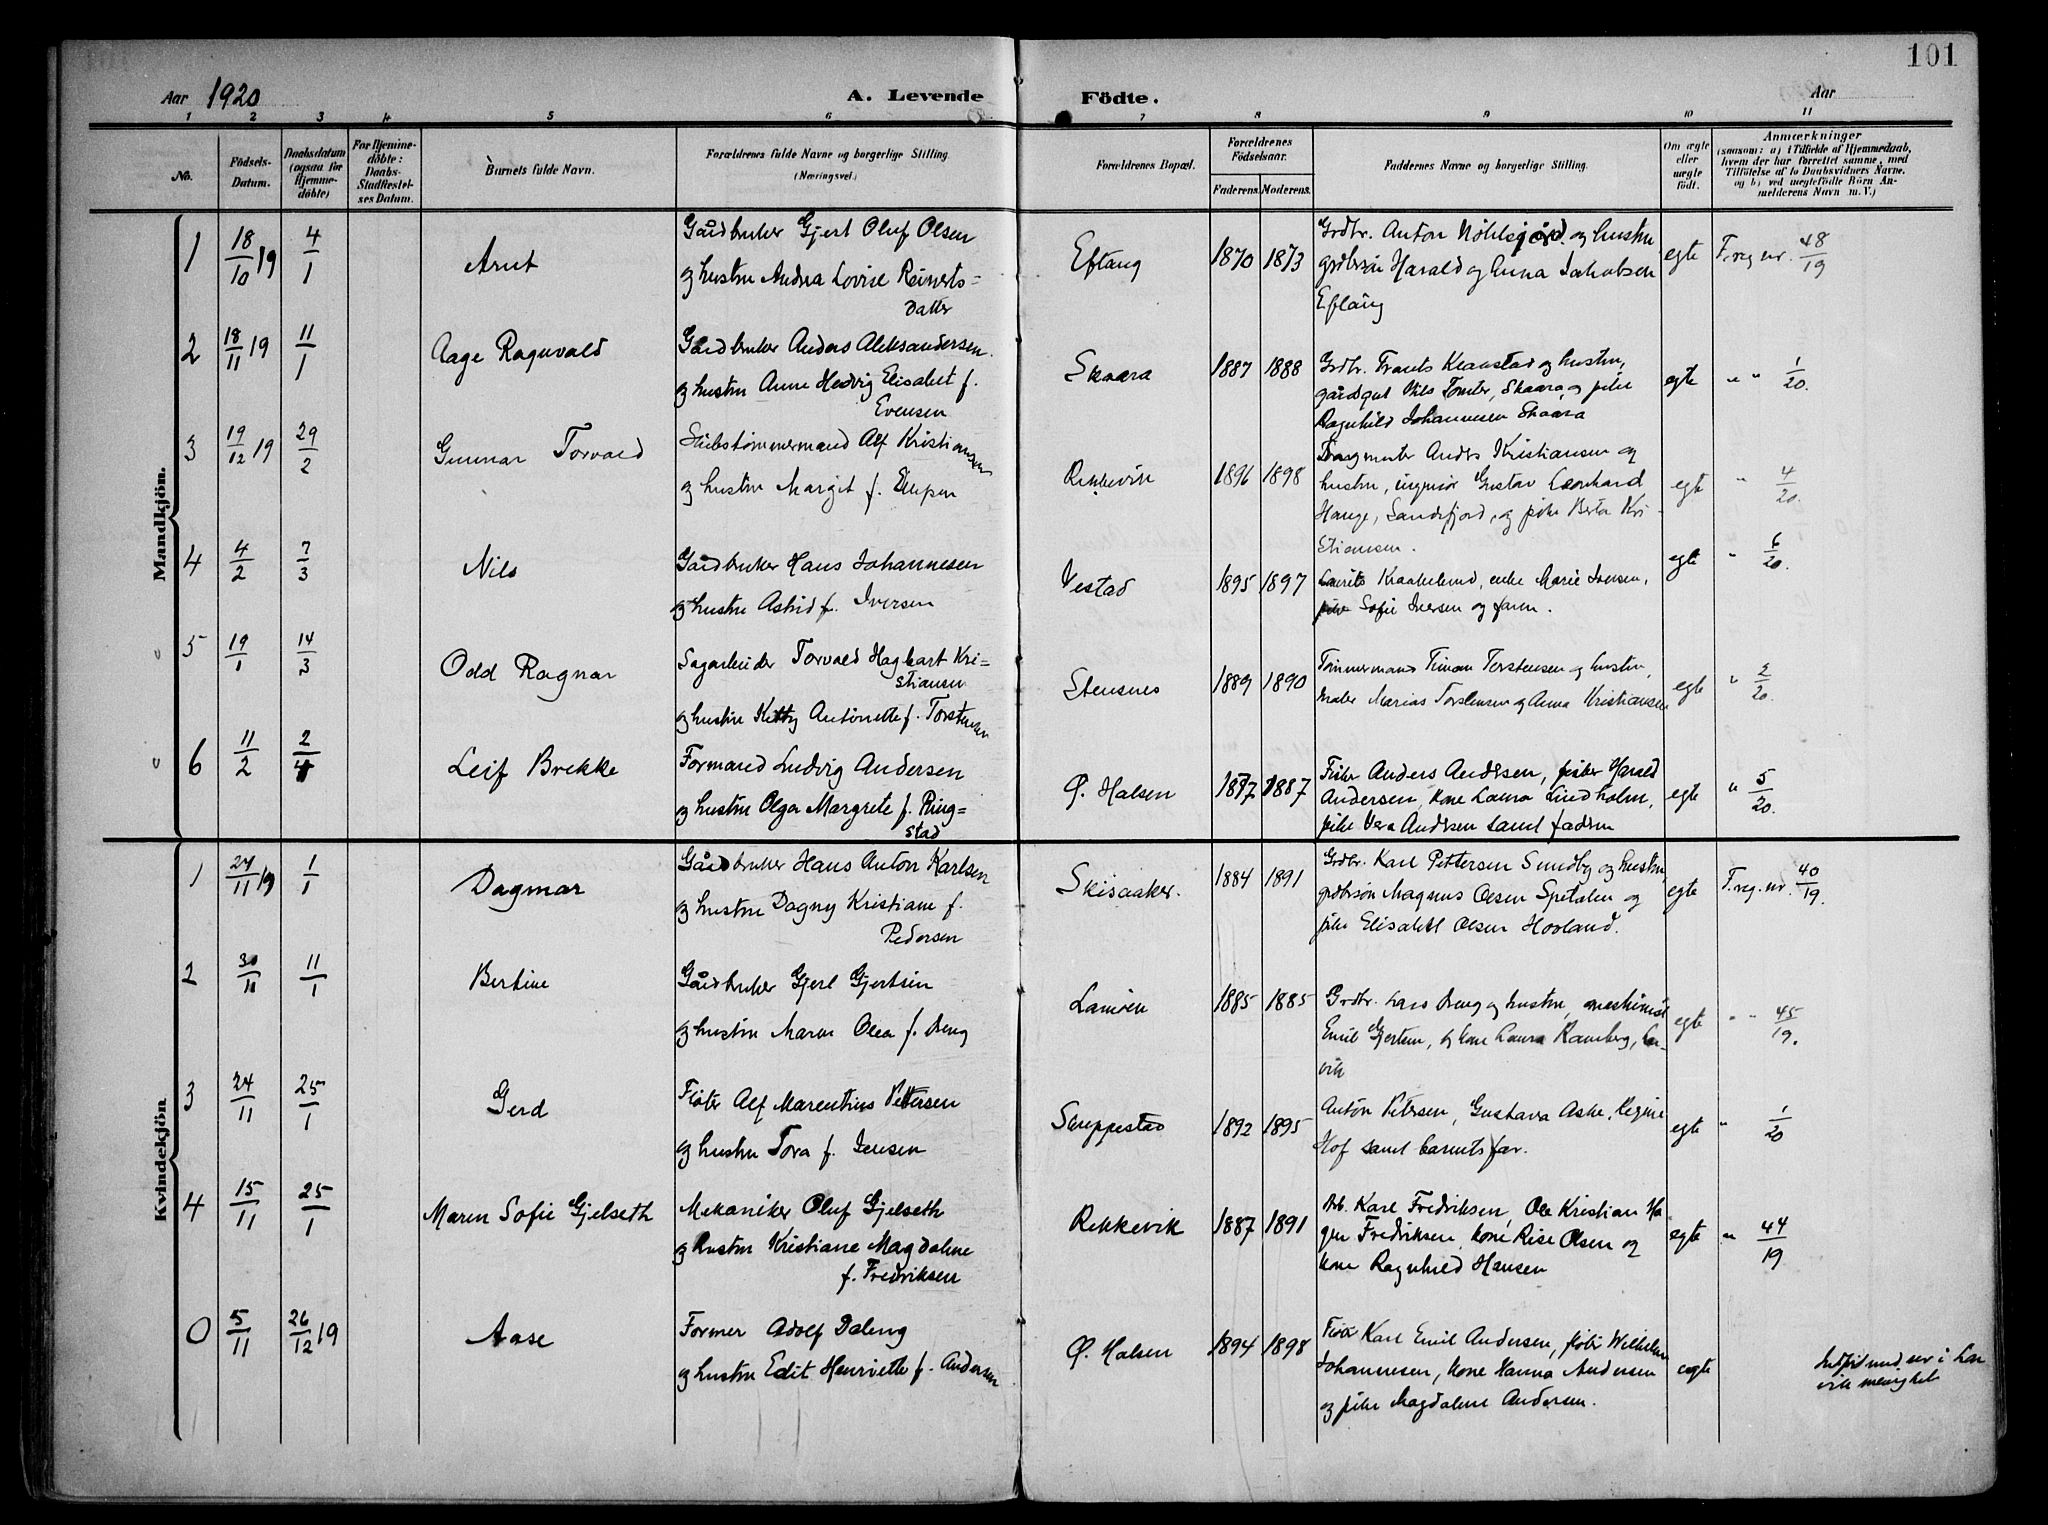 101
Aar 1920
A. Levende Födte.
Aar
1 2 3 4 5 6 7 8 9 10 11
No.
Födsels-Datum.
Daabsdatum (ogsaa for Hjemme-döbte)
For Hjemme-döbte: Daabs-Stadfæstel-ses Datum.
Barnets fulde Navn.
Forældrenes fulde Navne og borgerlige Stilling. (Næringsvei.)
Forældrenes Bopæl.
Forældrenes Födselsaar.
Faderens. Moderens.
Faddernes Navne og borgerlige Stilling.
Om ægte eller uægte født.
Anmærkninger
(saasom: a) i Tilfælde af Hjemmedaab, hvem der har forrettet samme, med Tilföielse af to Daabsvidners Navne. og b) ved uægtefödte Börn An-melderens Navn m. V.)
Mandkjön.
1 18/10 19 4/1 Arnt
Gårdbruker Gjert Oluf Olsen
og hustru Andrea Lovise Reinerts=
datter
Eftang 1870 1873
Grdbr. Anton og hustru
grdbrsøn Harald og Anna Jakobsen
Eftang
egte F. reg nr. 48/19
2 18/11 19 11/1 Aage Ragnvald
Gårdbruker Anders Aleksandersen
og hustru Anne Hedvig Elisabet f.
Evensen
Skaara 1887 1888
Grdbr. Frants Klavstad og hustru,
gårdsgut Nils Tomter, Skaara, og pike
Ragnhild Johannesen Skaara
egte " " 1/20.
3 19/12 19 29/2 Gunnar Torvald
Skibstømmermand Alf Kristiansen
og hustru Margit f. Ellefsen
Rekkevik 1896 1898
Anders Kristiansen og
hustru, ingeniør Gustav Leonhard
Hauge, Sandefjord, og pike Berta Kri-
stiansen.
egte " 4/20.
4 4/2 7/3 Nils
Gårdbruker Hans Johannesen
og hustru Astrid f. Iversen
Vestad 1895 1897
Laurits Kraakelund, enke Marie Iversen,
pike Sofie Iversen og faren.
egte " 6/20.
5 19/1 14/3 Odd Ragnar
Sagarbeider Torvald Hagbart Kri=
stiansen
og hustru Kitty Antonette f. Torstensen
Stensnes 1889 1890
Tømmermand Timan Torstensen og hustru,
maler Marius Torstensen og Anna Kristiansen
egte " 2/20.
6 11/2 2/4 Leif Brekke
Formand Ludvig Andersen
og hustru Olga Margrete f. Ring=
stad
Ø. Halsen 1887 1887
Fisker Anders Andersen, fisker Harald
Andersen, kone Laura Lindholm,
pike Vera Andersen samt faderen
egte " 5/20.
Kvindekjön
1 27/11 19 1/1 Dagmar
Gårdbruker Hans Anton Karlsen
og hustru Dagny Kristiane f.
Pedersen
Skisaaker. 1884 1891
Grdbr. Karl Pettersen Sundby og hustru,
grdbrsøn Magnus Olsen Spetalen og
pike Elisabet Olsen Hovland.
egte F. reg. nr. 40/19.
2 30/11 11/1 Bertine
Gårdbruker Gjert Gjertsen
og hustru Maren Olea f. Berg
Lamøen 1885 1885
Grdbr. Lars Berg og hustru, maskinist
Emil Gjertsen, og kone Laura Ramberg, Lar-
vik
egte " " 45/19.
3 24/11 25/1 Gerd
Fisker Alf Marentius Pettersen
og hustru Tora f. Jensen
Seuppestad 1892 1895
Anton Petersen, Gustava Aske, Regine
Hof samt barnets far.
egte " 1/20
4 15/11 25/1 Maren Sofie Gjelseth
Mekaniker Oluf Gjelseth
og hustru Kristiane Magdalene
f. Fredriksen
Rekkevik 1887 1891
Arb. Karl Fredriksen, Ole Kristian Ha
gen Fredriksen, kone Rise Olsen og
kone Ragnhild Hansen
egte " 44/19
0 5/11 26/12 19 Aase
Former Adolf Daling
og hustru Edit Henriette f. Andersen
Ø. Halsen 1894 1898
Fisker Karl Emil Andersen, fisker Wilhelm
Johannesen, kone Hanna Andersen
og pike Magdalene Andersen.
egte
i Lar
vik menighet